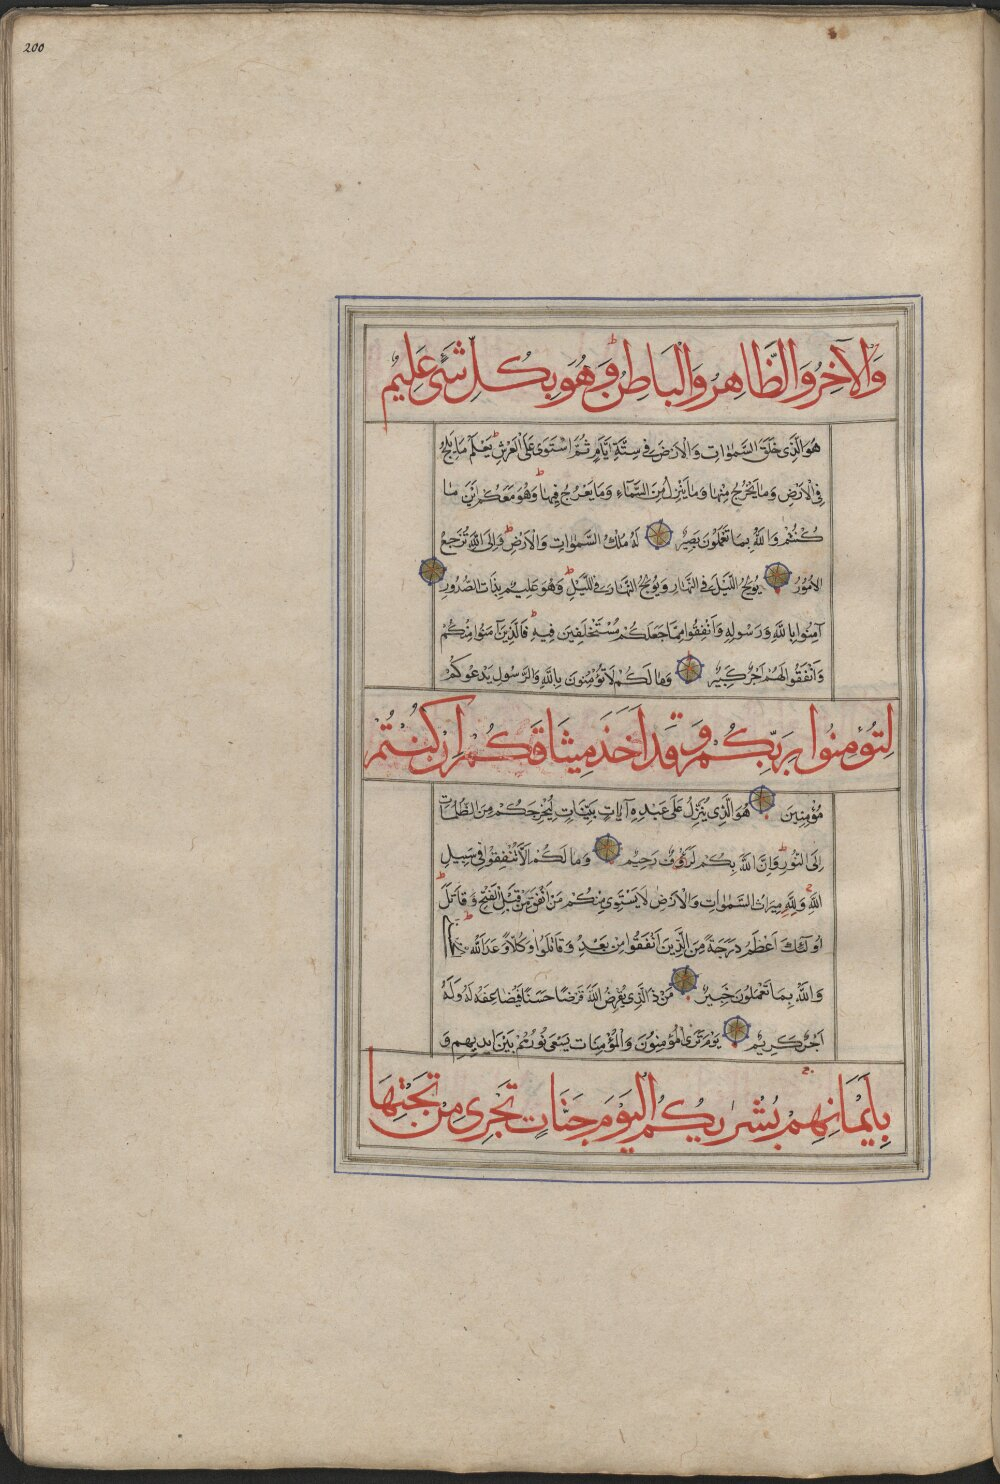 200
وَالْآخِرُ وَالظَّاهِرُ وَالْبَاطِنُ وَهُوَ بِكُلِّ شَىْءٍ عَلِيمٌ
هُوَ الَّذِى خَلَقَ السَّمٰوَاتِ وَالْاَرْضَ فِى سِتَّةِ اَيَّامٍ ثُمَّ اسْتَوٰى عَلَى الْعَرْشِ يَعْلَمُ مَا يَلِجُ
فِى الْاَرْضِ وَمَا يَخْرُجُ مِنْهَا وَمَا يَنْزِلُ مِنَ السَّمَآءِ وَمَا يَعْرُجُ فِيهَا وَهُوَ مَعَكُمْ اَيْنَ مَا
كُنْتُمْ وَاللَّهُ بِمَا تَعْمَلُونَ بَصِيرٌ لَهُ مُلْكُ السَّمٰوَاتِ وَالْاَرْضِ وَاِلَى اللَّهِ تُرْجَعُ
الْاُمُورُ يُولِجُ اللَّيْلَ فِى النَّهَارِ وَيُولِجُ النَّهَارَ فِى اللَّيْلِ وَهُوَ عَلِيمٌ بِذَاتِ الصُّدُورِ
آمِنُوا بِاللَّهِ وَرَسُولِهِ وَاَنْفِقُوا مِمَّا جَعَلَكُمْ مُسْتَخْلَفِينَ فِيهِ فَالَّذِينَ آمَنُوا مِنْكُمْ
وَاَنْفَقُوا لَهُمْ اَجْرٌ كَبِيرٌ وَمَا لَكُمْ لَا تُؤْمِنُونَ بِاللَّهِ وَالرَّسُولُ يَدْعُوكُمْ
لِتُؤْمِنُوا بِرَبِّكُمْ وَقَدْ اَخَذَ مِيثَاقَكُمْ اِنْ كُنْتُمْ
مُؤْمِنِينَ هُوَ الَّذِى يُنَزِّلُ عَلَى عَبْدِهِ آيَاتٍ بَيِّنَاتٍ لِيُخْرِجَكُمْ مِنَ الظُّلُمَاتِ
اِلَى النُّورِ وَاِنَّ اللَّهَ بِكُمْ لَرَؤُفٌ رَحِيمٌ وَمَا لَكُمْ اَلَّا تُنْفِقُوا فِى سَبِيلِ
اللَّهِ وَلِلَّهِ مِيرَاثُ السَّمٰوَاتِ وَالْاَرْضِ لَا يَسْتَوِى مِنْكُمْ مَنْ اَنْفَقَ مِنْ قَبْلِ الْفَتْحِ وَقَاتَلَ
اُولٰئِكَ اَعْظَمُ دَرَجَةً مِنَ الَّذِينَ اَنْفَقُوا مِنْ بَعْدُ وَقَاتَلُوا وَكُلًّا وَعَدَ اللَّهُ
وَاللَّهُ بِمَا تَعْمَلُونَ خَبِيرٌ مَنْ ذَا الَّذِى يُقْرِضُ اللَّهَ قَرْضًا حَسَنًا فَيُضَاعِفَهُ لَهُ وَلَهُ
اَجْرٌ كَرِيمٌ يَوْمَ تَرَى الْمُؤْمِنُونَ وَالْمُؤْمِنَاتِ يَسْعَى نُورُهُمْ بَيْنَ اَيْدِيهِمْ وَ
بِاَيْمَانِهِمْ بُشْرٰيكُمُ الْيَوْمَ جَنَّاتٌ تَجْرِى مِنْ تَحْتِهَا